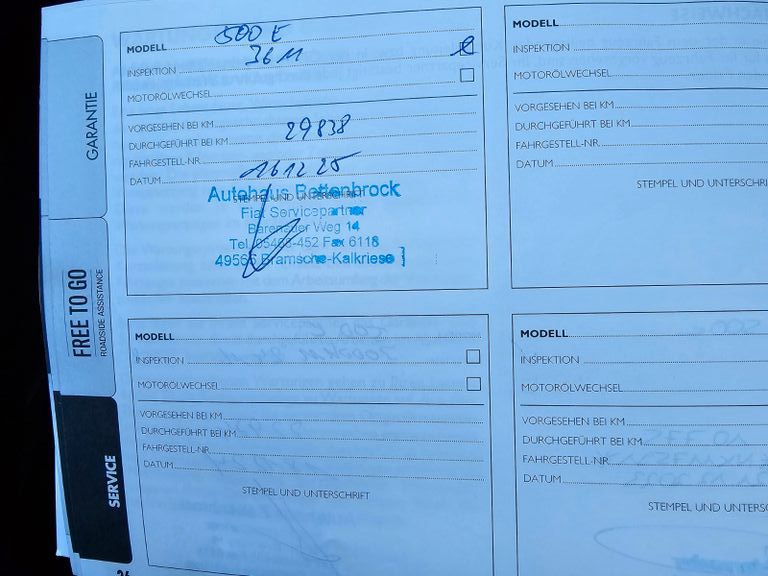 GARANTIE
FREE TO GO
ROADSIDE ASSISTANCE
SERVICE
MODELL 500 E
INSPEKTION 36 M
MOTORÖLWECHSEL
VORGESEHEN BEI KM
DURCHGEFÜHRT BEI KM 29838
FAHRGESTELL-NR.
DATUM 16 12 25
STEMPEL UND UNTERSCHRIFT
Autohaus Rettenbrock
Fiat Servicepartner
Weg 14
Fax 6118
Bramsche-Kalkriese
MODELL
INSPEKTION
MOTORÖLWECHSEL
VORGESEHEN BEI KM
DURCHGEFÜHRT BEI KM
FAHRGESTELL-NR.
DATUM
STEMPEL UND UNTERSCHRI
MODELL
INSPEKTION
MOTORÖLWECHSEL
VORGESEHEN BEI KM
DURCHGEFÜHRT BEI KM
FAHRGESTELL-NR.
DATUM
STEMPEL UND UNTERSCHRIFT
MODELL
INSPEKTION
MOTORÖLWECHSEL
VORGESEHEN BEI KM
DURCHGEFÜHRT BEI KM
FAHRGESTELL-NR.
DATUM
STEMPEL UND UNTERSC